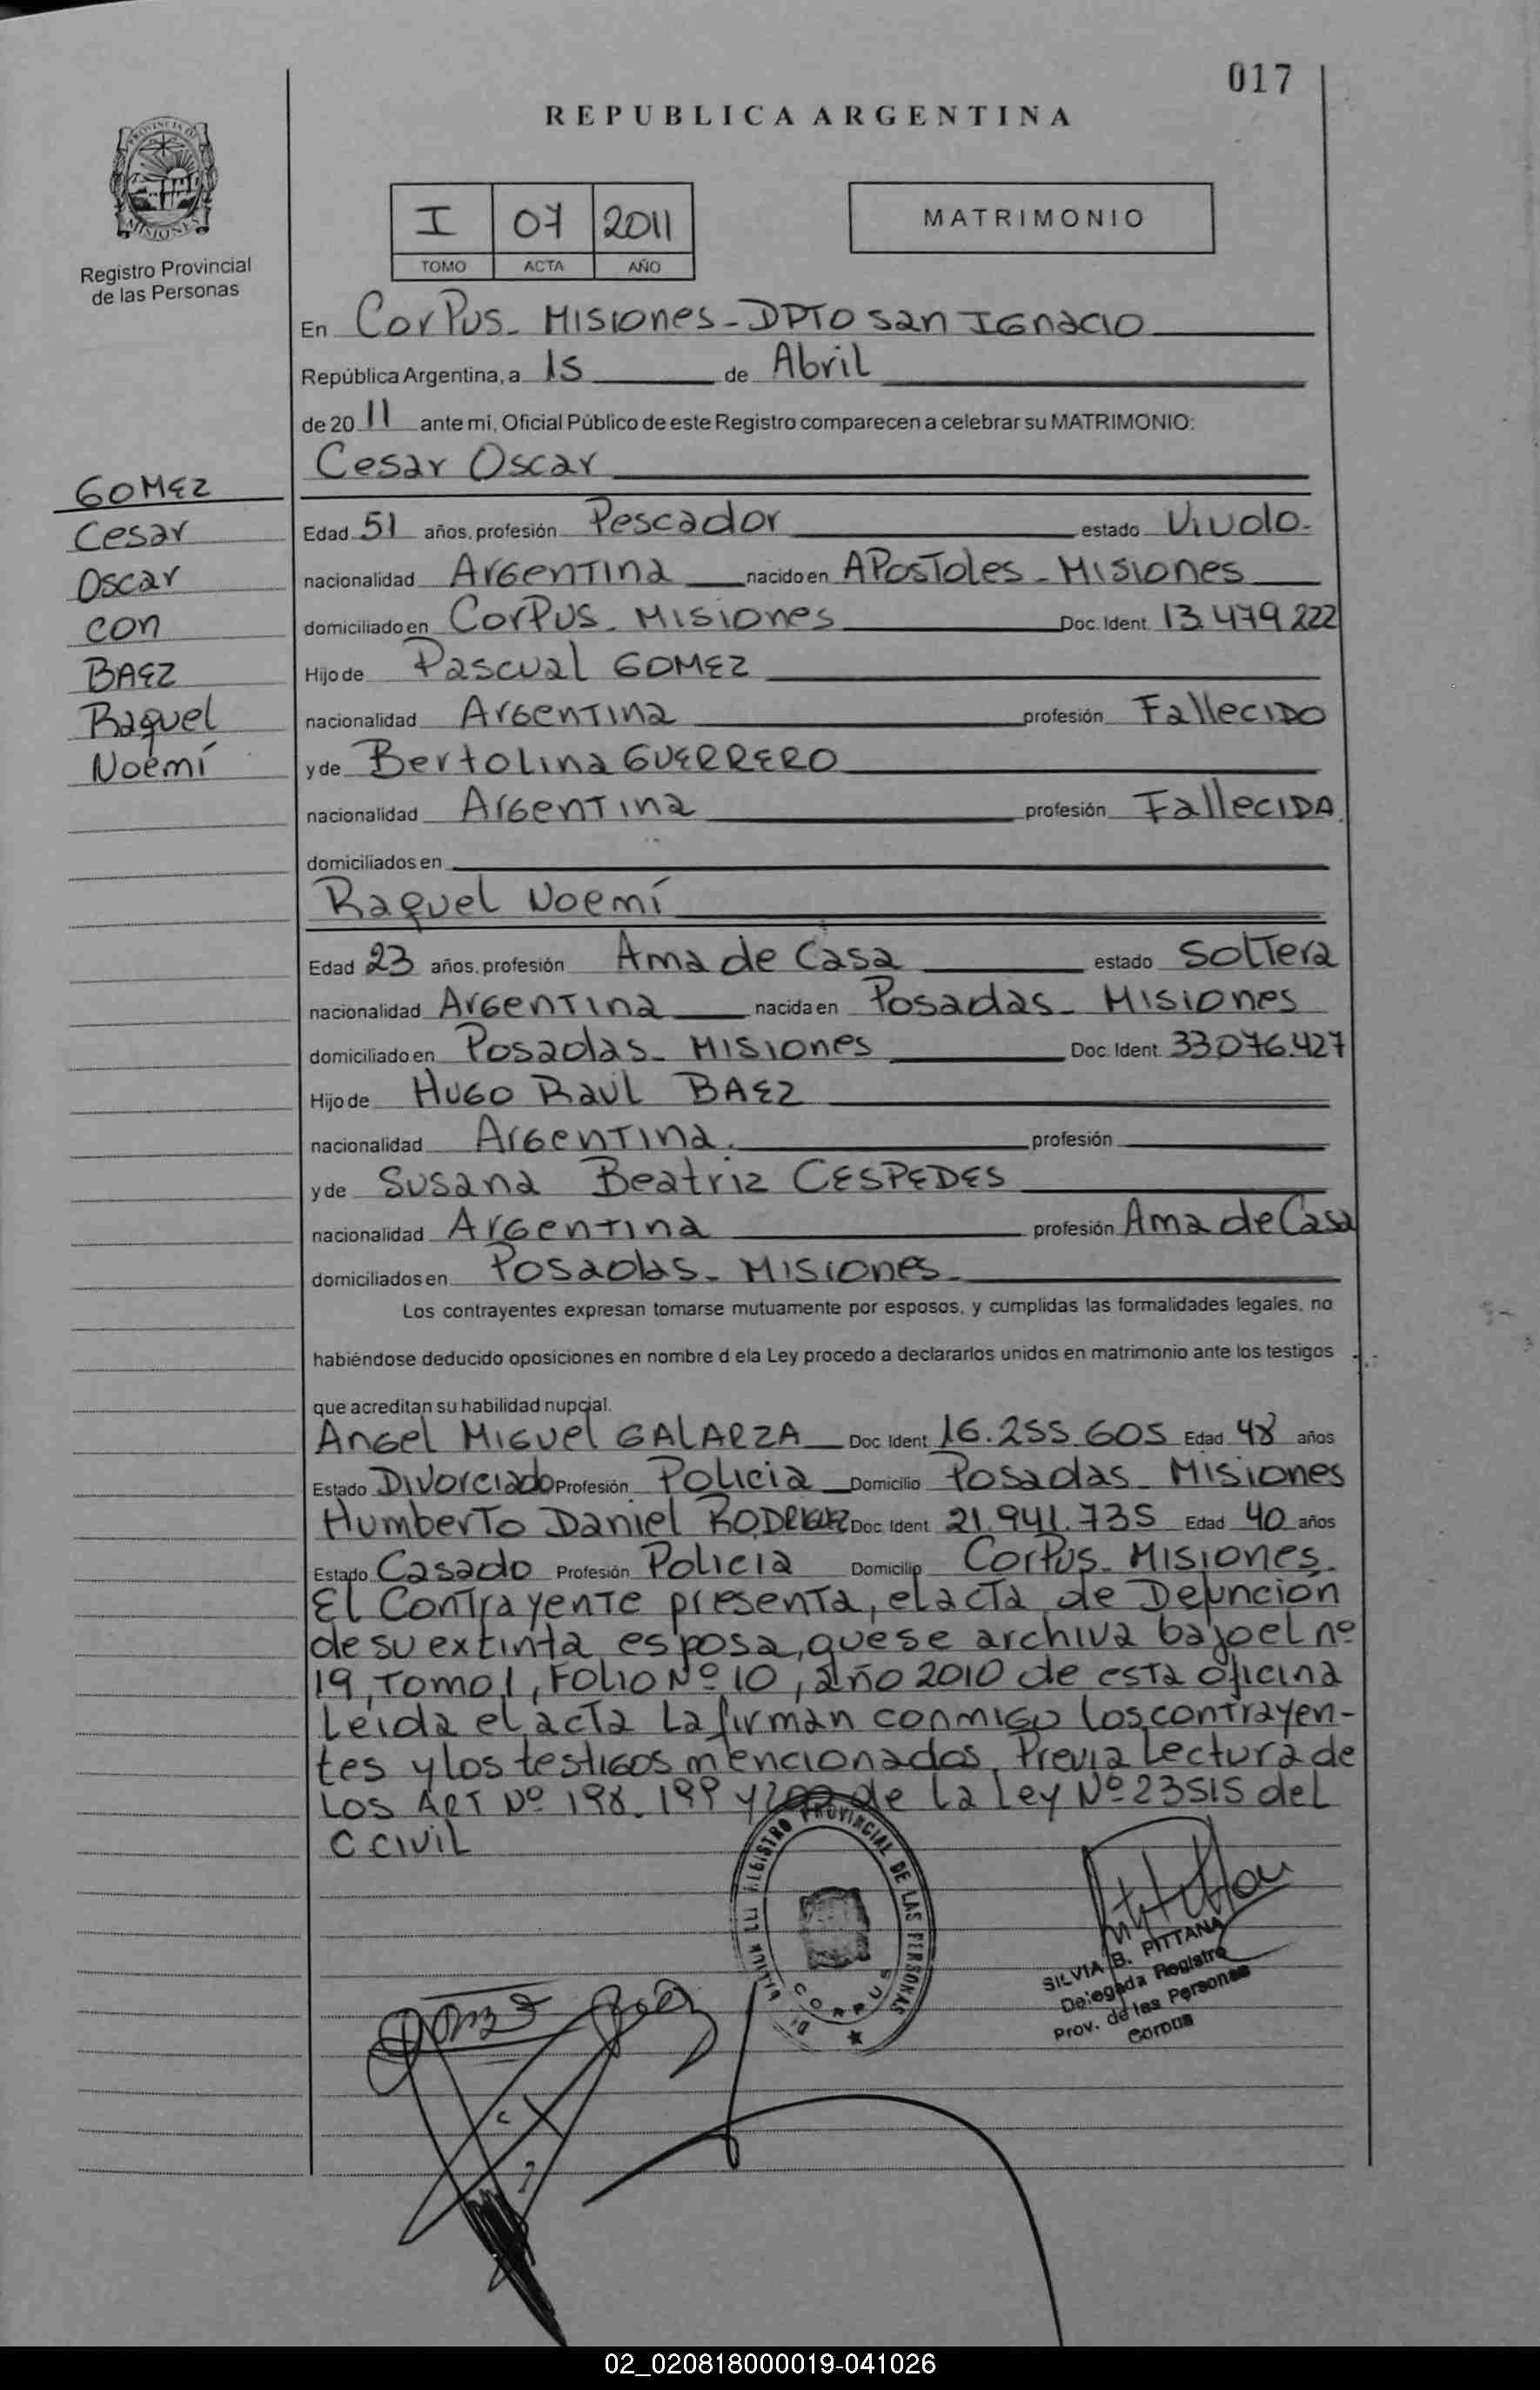 017
REPUBLICA ARGENTINA
PROVINCIA DE
MISIONES
Registro Provincial
de las Personas
I 07 2011
TOMO ACTA AÑO
MATRIMONIO
En Corpus - Misiones - DPTO San Ignacio
República Argentina, a 15 de Abril
de 20 11 ante mi, Oficial Público de este Registro comparecen a celebrar su MATRIMONIO:
Cesar Oscar
GOMEZ
Cesar
Oscar
con
BAEZ
Raquel
Noemí
Edad 51 años, profesión Pescador estado Viudo.
nacionalidad Argentina nacido en Apostoles - Misiones
domiciliado en Corpus - Misiones Doc. Ident. 13.479.222
Hijo de Pascual GOMEZ
nacionalidad Argentina profesión Fallecido
y de Bertolina GUERRERO
nacionalidad Argentina profesión Fallecida
domiciliados en
Raquel Noemí
Edad 23 años, profesión Ama de Casa estado Soltera
nacionalidad Argentina nacida en Posadas - Misiones
domiciliado en Posadas - Misiones Doc. Ident. 33.076.427
Hijo de Hugo Raul BAEZ
nacionalidad Argentina. profesión
y de Susana Beatriz CESPEDES
nacionalidad Argentina profesión Ama de Casa
domiciliados en Posadas - Misiones
Los contrayentes expresan tomarse mutuamente por esposos, y cumplidas las formalidades legales, no
habiéndose deducido oposiciones en nombre d ela Ley procedo a declararlos unidos en matrimonio ante los testigos
que acreditan su habilidad nupcial.
Angel Miguel GALARZA Doc Ident 16.255.605 Edad 48 años
Estado Divorciado Profesión Policia Domicilio Posadas - Misiones
Humberto Daniel RODRIGUEZ Doc. Ident 21.941.735 Edad 40 años
Estado Casado Profesión Policia Domicilio Corpus - Misiones.
El Contrayente presenta, el acta de Defunción
de su extinta esposa, que se archiva bajo el nº
19, Tomo 1, Folio Nº 10, año 2010 de esta oficina
Leida el acta La firman conmigo los contrayen-
tes y los testigos mencionados. Previa Lectura de
Los Art Nº 198. 199 y 200 de La Ley Nº 23515 del
C CIVIL
REGISTRO PROVINCIAL DE LAS PERSONAS
CORPUS
SILVIA B. PITTANA
Delegada Registro
Prov. de las Personas
Corpus
02_020818000019-041026